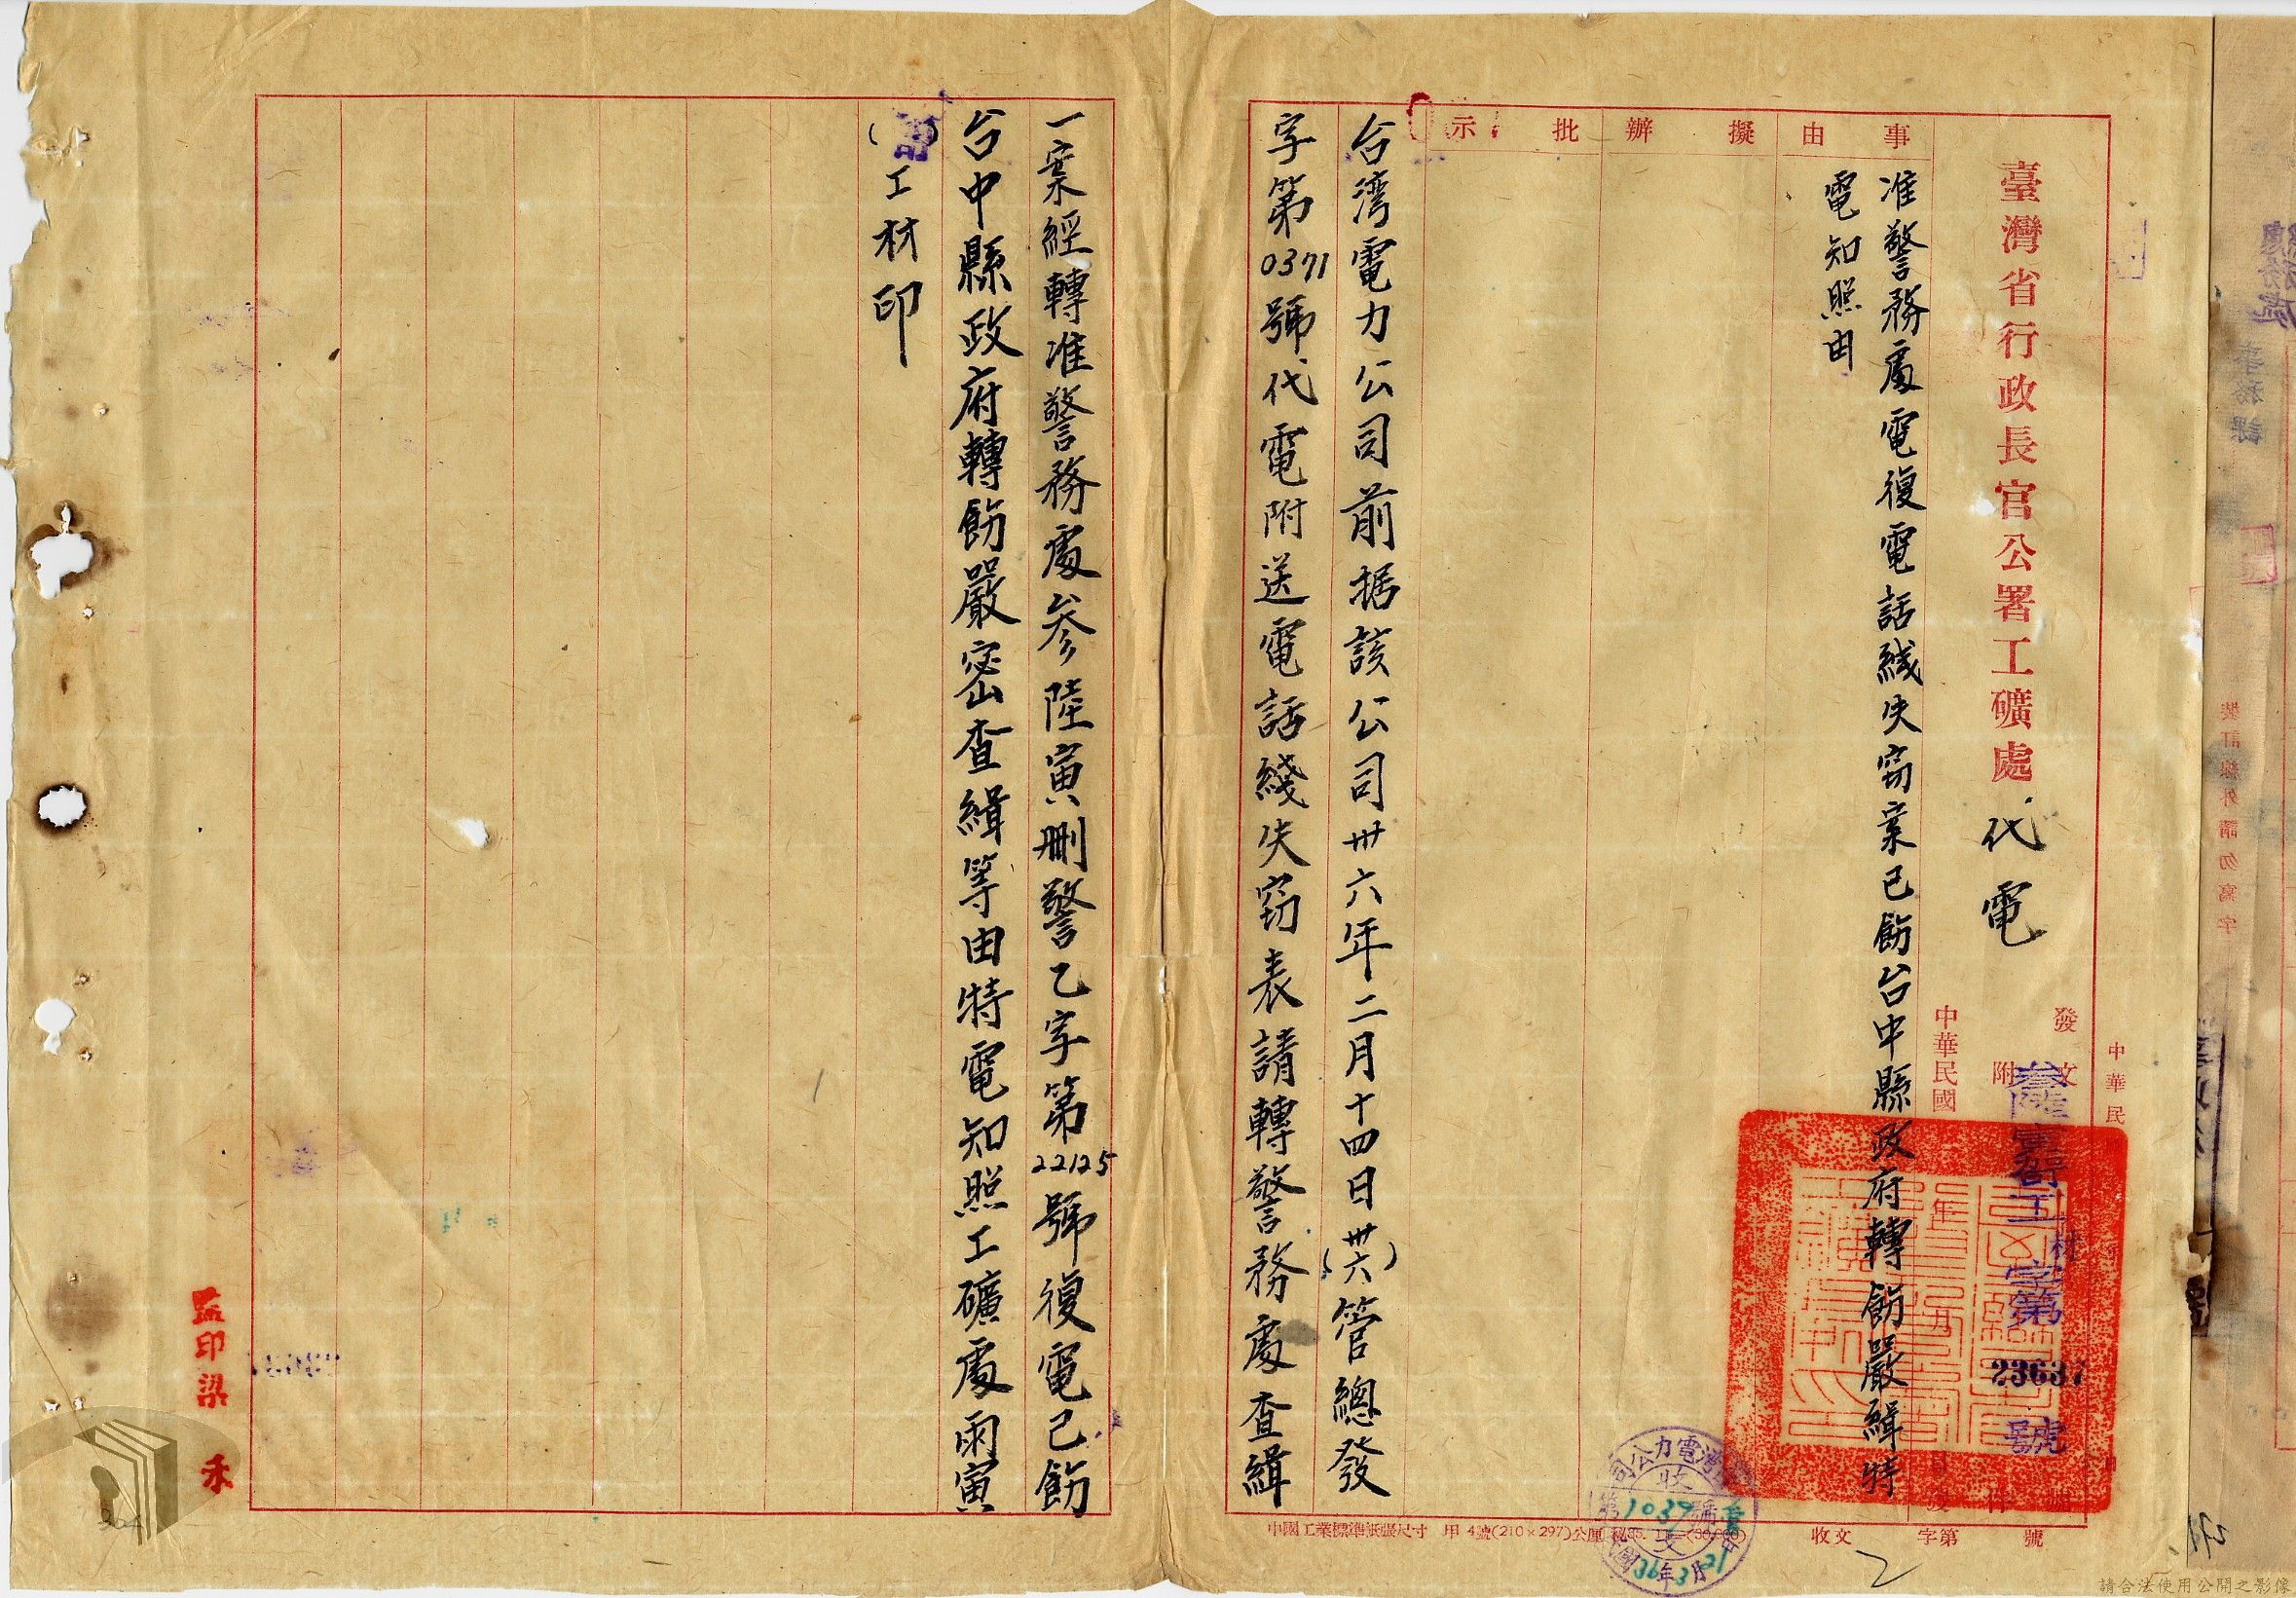 臺灣省行政長官公署工礦處 代電
發文
附
中華民國
中華民
參陸寅
工材字第23637號
事由
准警務處電復電話綫失窃案已飭台中縣政府轉飭嚴緝特
電知照由
擬辦
批示
台湾電力公司前据該公司卅六年二月十四日(卅六)管總發
字第0371號代電附送電話綫失窃表請轉警務處查緝
一案經轉准警務處參陸寅刪警乙字第22125號復電已飭
台中縣政府轉飭嚴密查緝等由特電知照工礦處丙寅
( )工材印
監印梁
中國工業標準紙張尺寸 甲4號(210×297)公厘
收文 字第 號
收文
第1039號
36年3月21
裝訂線外請勿寫字
請合法使用公開之影像